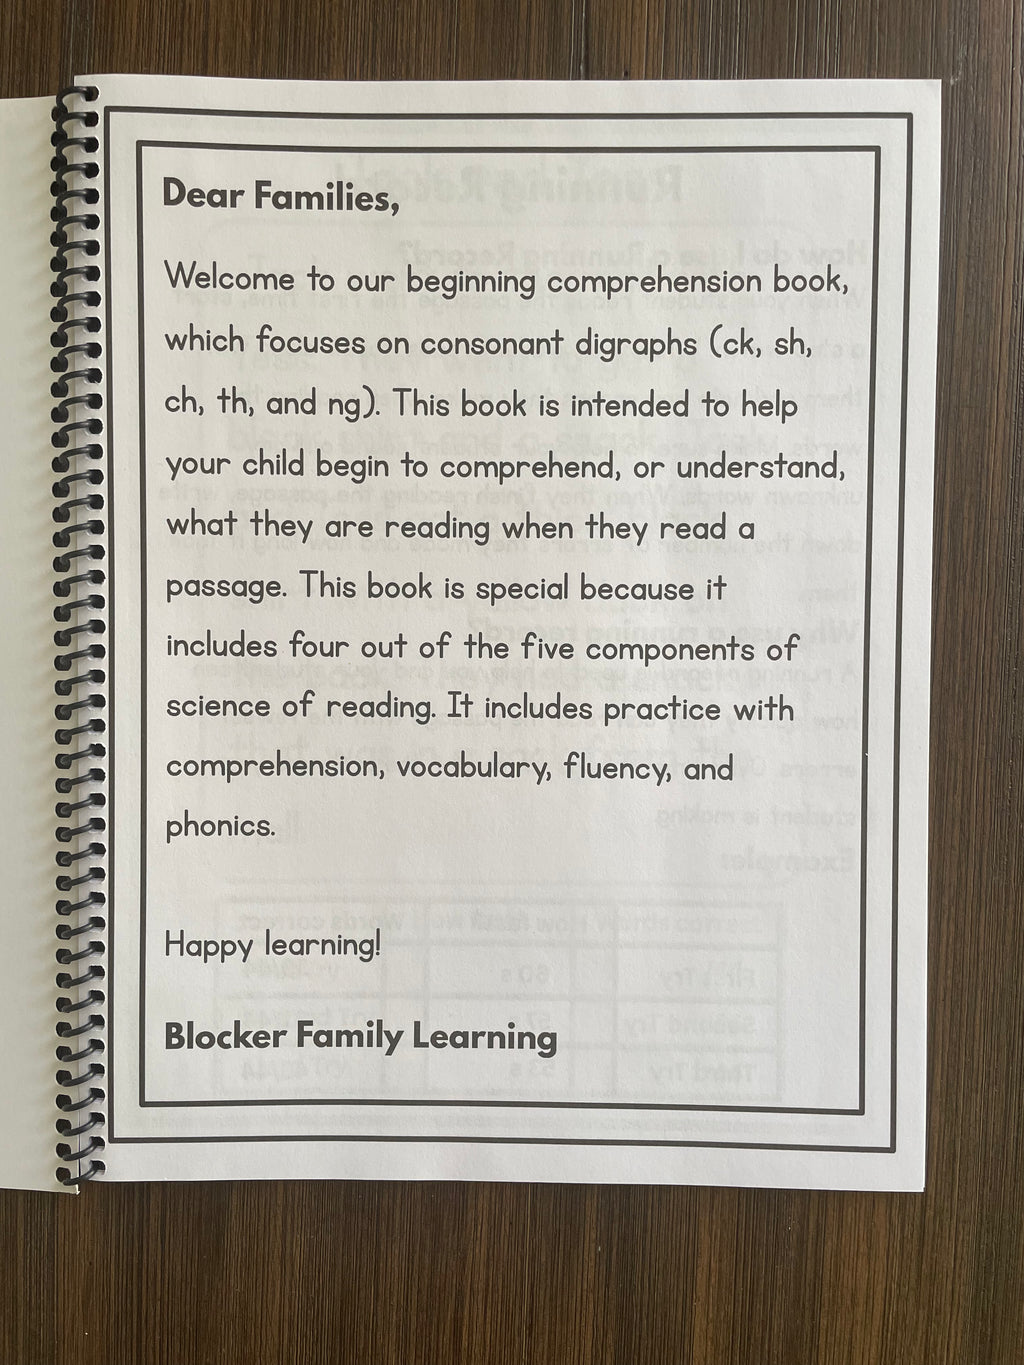 Dear Families,
Welcome to our beginning comprehension book,
which focuses on consonant digraphs (ck, sh,
ch, th, and ng). This book is intended to help
your child begin to comprehend, or understand,
what they are reading when they read a
passage. This book is special because it
includes four out of the five components of
science of reading. It includes practice with
comprehension, vocabulary, fluency, and
phonics.
Happy learning!
Blocker Family Learning